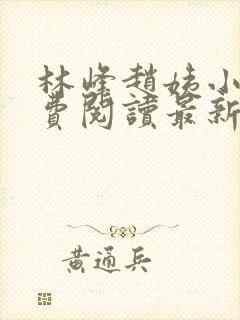 林峰趙姨小
費閱讀最新
黃通兵